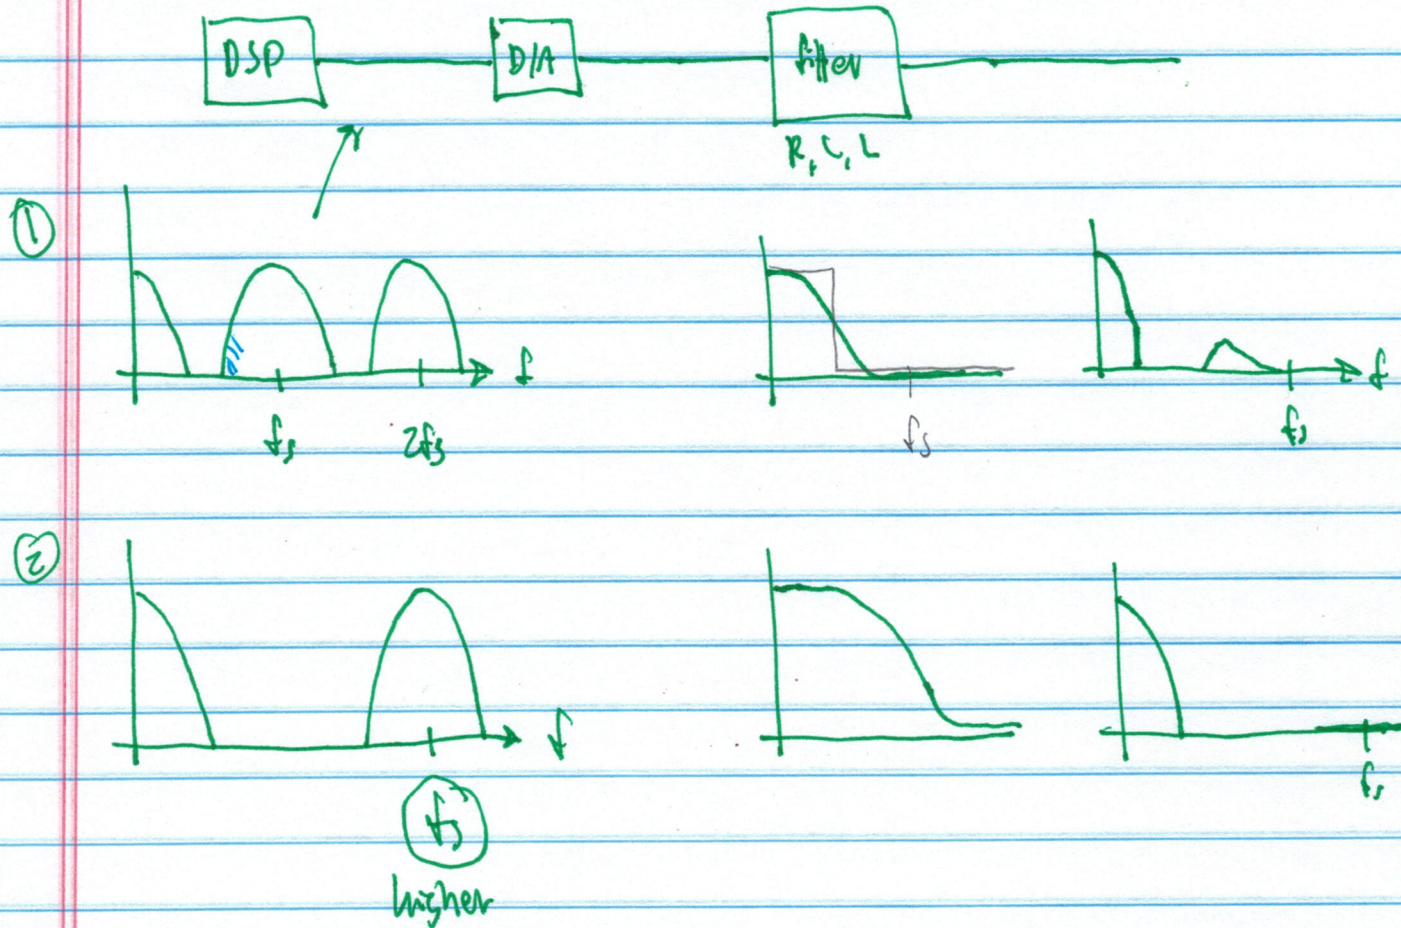 DSP D/A filter
R, C, L
①
f f
fs 2fs fs fs
②
f
fs fs
higher